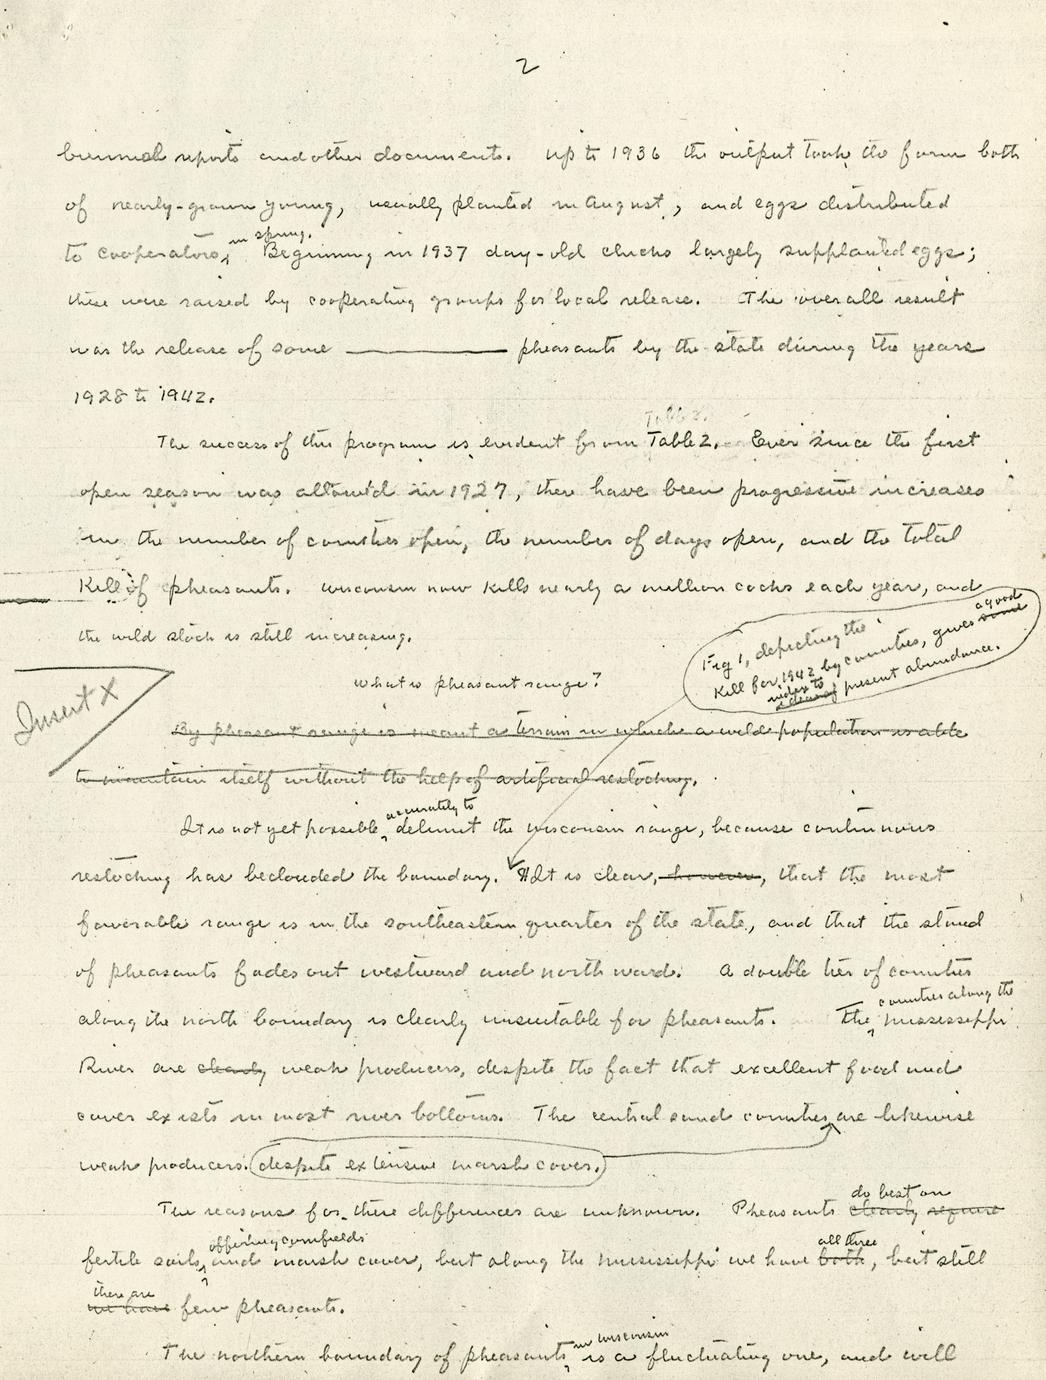 2
biennial reports and other documents. Up to 1936 the output took the form both
of nearly-grown young, usually planted in August, and eggs distributed
in spring.
to cooperators. Beginning in 1937 day-old chicks largely supplanted eggs;
these were raised by cooperating groups for local release. The overall result
was the release of some ———— pheasants by the state during the years
1928 to 1942.
The success of this program is evident from Table 2. Ever since the first
open season was allowed in 1927, there have been progressive increases
in the number of counties open, the number of days open, and the total
kill of pheasants. Wisconsin now kills nearly a million cocks each year, and
the wild stock is still increasing.
a good
Fig 1, depicting the
kill for 1942 by counties, gives some
index to present abundance.
What is pheasant range?
Insert X
By pheasant range is meant a terrain in which a wild population is able
to maintain itself without the help of artificial restocking.
accurately to
It is not yet possible delimit the Wisconsin range, because continuous
restocking has beclouded the boundary. ¶It is clear, however, that the most
favorable range is in the southeastern quarter of the state, and that the stand
of pheasants fades out westward and northward. A double tier of counties
counties along the
along the north boundary is clearly unsuitable for pheasants. The Mississippi
River are clearly weak producers, despite the fact that excellent food and
cover exists in most river bottoms. The central sand counties are likewise
weak producers. despite extensive marsh cover.
do best on
The reasons for these differences are unknown. Pheasants clearly require
offering cornfields all three
fertile soils and marsh cover, but along the Mississippi we have both, but still
there are
we have few pheasants.
in Wisconsin
The northern boundary of pheasants is a fluctuating one, and will